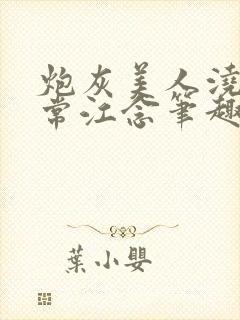 炮灰美人澆
常江念筆趣
葉小嬰